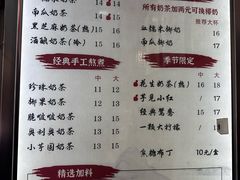 南瓜奶茶 14 16
黑芝麻奶茶(热) 14 16
酒酿奶茶(冷) 14 16
所有奶茶加两元可换椰奶
推荐大杯
血糯米椰奶 16 18
南瓜椰奶 16 18
经典手工熬煮
中 大
珍珠奶茶 11 13
椰果奶茶 11 13
脆啵啵奶茶 13 15
奥利奥奶茶 13 15
小芋圆奶茶 13 15
季节限定
中 大
花生奶茶(热) 16 18
芋见小红 / 17
经典鸳鸯 / 15
一颗大柠檬 / 15
焦糖布丁 10元/盒
精选加料